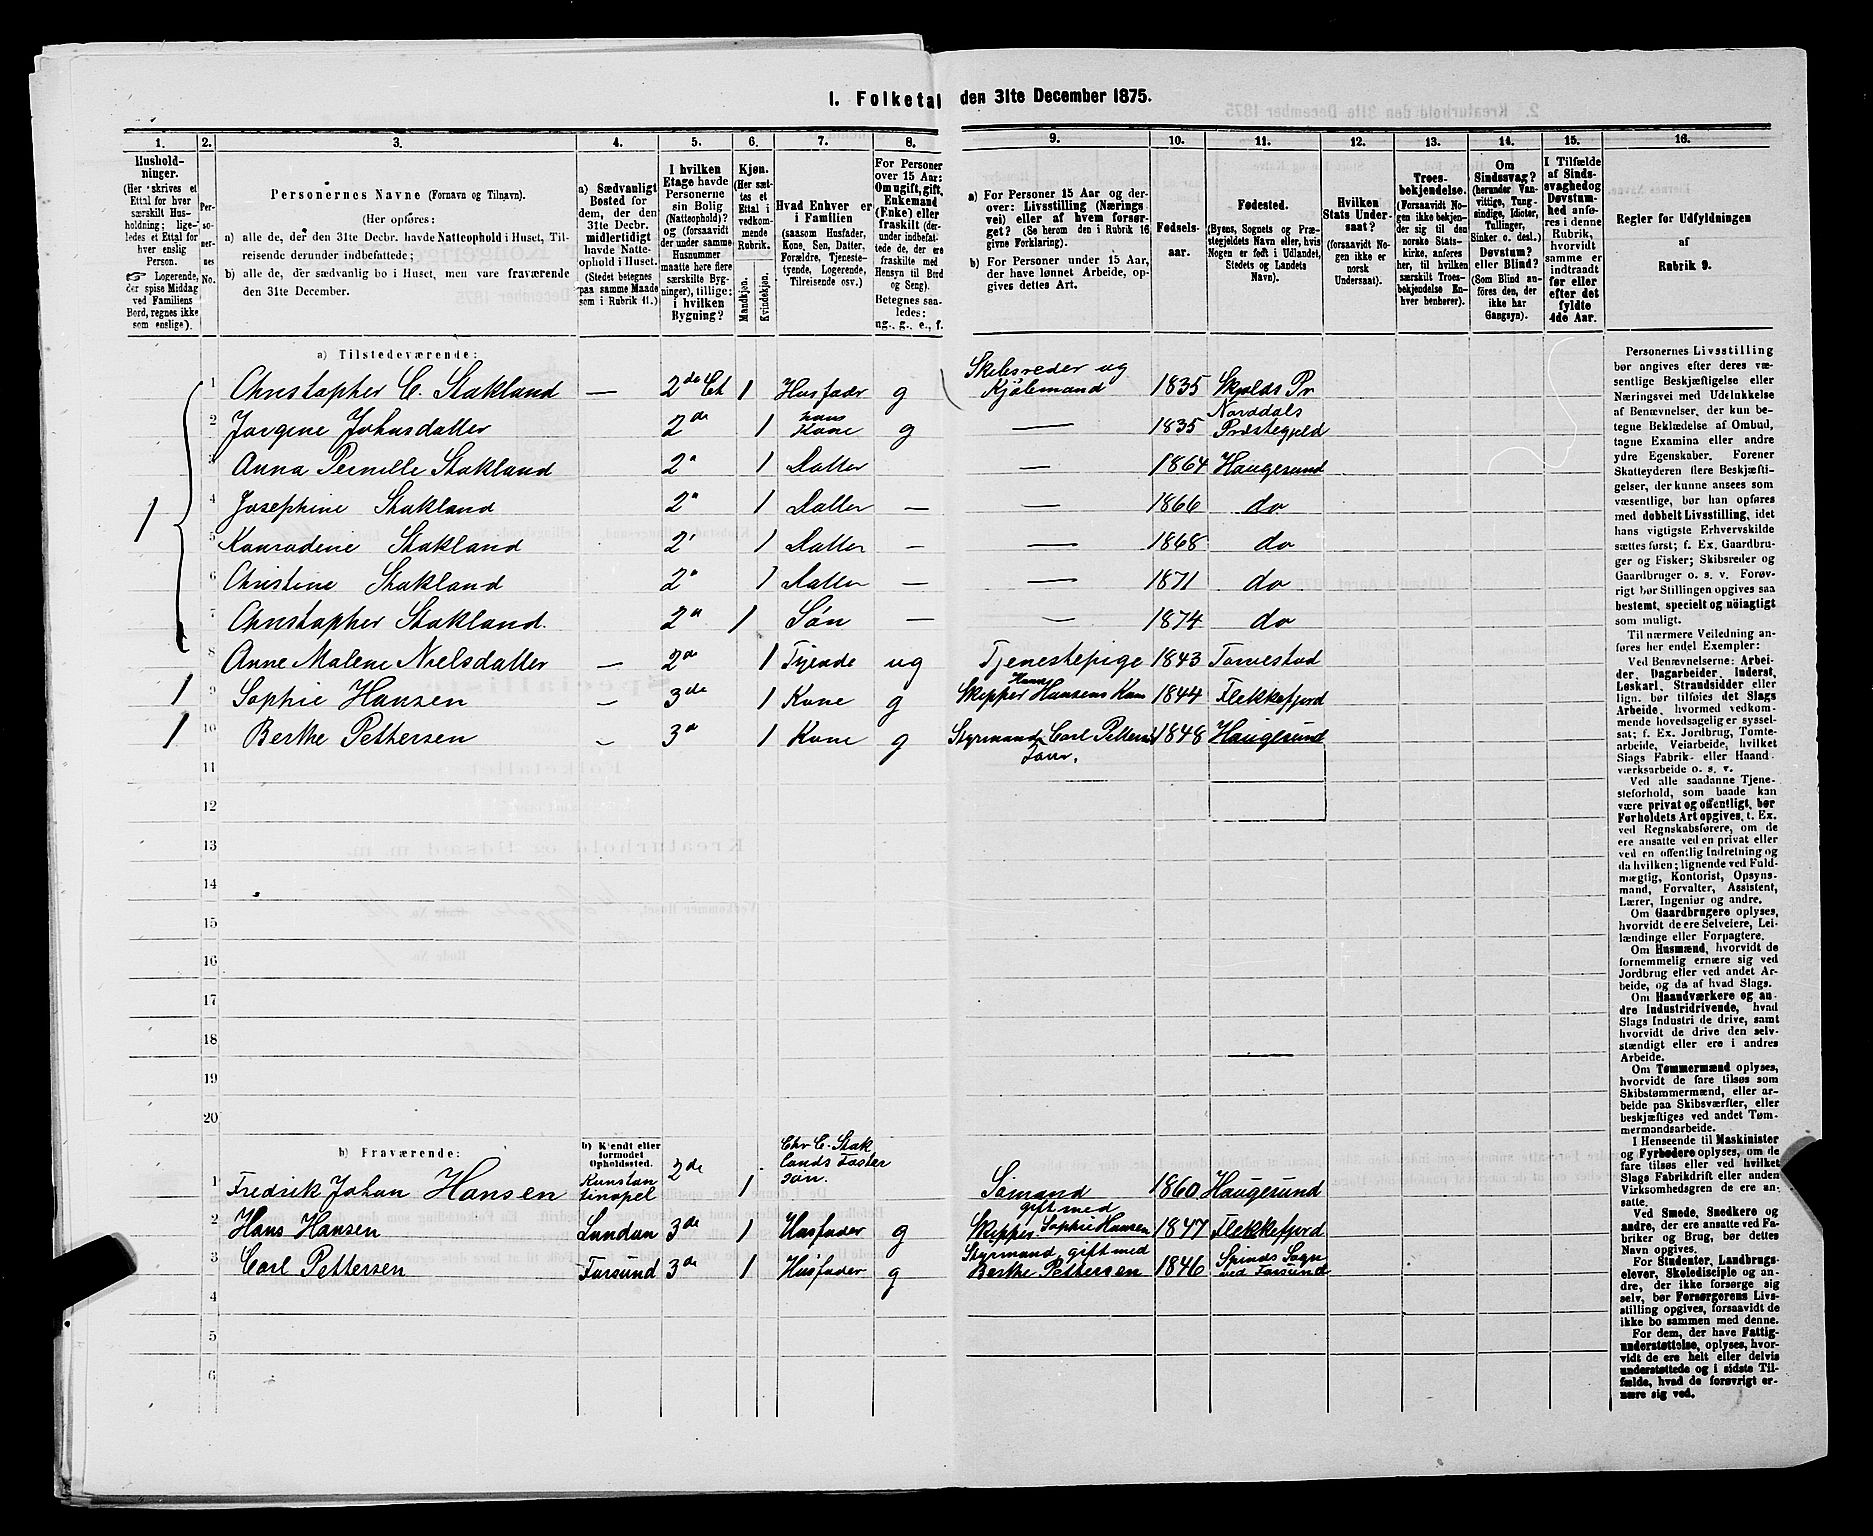 1. Folketal den 31te December 1875.
1. 2. 3. 4. 5. 6. 7. 8. 9. 10. 11. 12. 13. 14. 15. 16.
Hushold-
ninger.
(Her skrives et
Ettal for hver
særskilt Hus-
holdning; lige-
ledes et Ettal for
hver enslig
Person.
☞ Logerende,
der spise Middag
ved Familiens
Bord, regnes ikke
som enslige).
Per-
so-
ner-
nes
No.
Personernes Navne (Fornavn og Tilnavn).
(Her opføres:
a) alle de, der den 31te Decbr. havde Natteophold i Huset, Til-
reisende derunder indbefattede;
b) alle de, der sædvanlig bo i Huset, men vare fraværende
den 31te December.
a) Sædvanligt
Bosted for
dem, der den
31te Decbr.
midlertidigt
havde Natte-
ophold i Huset.
(Stedet betegnes
paa samme Maade
som i Rubrik 11.)
I hvilken
Etage havde
Personerne
sin Bolig
(Natteophold)?
og (forsaavidt
der under samme
Husnummer
maatte høre flere
særskilte Byg-
ninger), tillige:
i hvilken
Bygning?
Kjøn.
(Her sæt-
tes et
Ettal i
vedkom-
mende
Rubrik.
Mandkjøn.
Kvindekjøn.
Hvad Enhver er
i Familien
(saasom Husfader,
Kone, Søn, Datter,
Forældre, Tjeneste-
tyende, Logerende,
Tilreisende osv.)
For Personer
over 15 Aar:
Om ugift, gift,
Enkemand
(Enke) eller
fraskilt (der-
under indbefat-
tede de, der ere
fraskilte med
Hensyn til Bord
og Seng).
Betegnes saa-
ledes:
ug., g., e., f.
a) For Personer 15 Aar og der-
over: Livsstilling (Nærings-
vei) eller af hvem forsør-
get? (Se herom den i Rubrik 16
givne Forklaring).
b) For Personer under 15 Aar,
der have lønnet Arbeide, op-
gives dettes Art.
Fødsels-
aar.
Fødested.
(Byens, Sognets og Præ-
stegjeldets Navn eller, hvis
Nogen er født i Udlandet,
Stedets og Landets
Navn).
Hvilken
Stats Under-
saat?
(forsaavidt No-
gen ikke er
norsk
Undersaat).
Troes-
bekjendelse.
(Forsaavidt No-
gen ikke bekjen-
der sig til den
norske Stats-
kirke, anføres
her, til hvilken
særskilt Troes-
bekjendelse En-
hver henhører).
Om
Sindssvag?
(herunder Van-
vittige, Tung-
sindige, Idioter,
Tullinger,
Sinker o. desl.)
Døvstum?
eller Blind?
(Som Blind an-
føres den, der
ikke har
Gangsyn).
I Tilfælde
af Sinds-
svaghed og
Døvstum-
hed anfø-
res i denne
Rubrik,
hvorvidt
samme er
indtraadt
før eller
efter det
fyldte
4de Aar.
Regler for Udfyldningen
af
Rubrik 9.
a) Tilstedeværende:
1 Christopher C. Stakland — 2de Et 1 Husfader g Skibsreder og Kjøbmand 1835 Skjolds Pr
2 Jorgine Johnsdatter 2de 1 hans Kone g — 1835 Norddals Præstegjeld
3 Anna Pernille Stakland 2" 1 Datter — 1864 Haugesund
1 4 Josephine Stakland 2" 1 Datter — — 1866 do
5 Konradene Stakland 2" 1 Datter — — 1868 do
6 Christine Stakland 2" 1 Datter — — 1871 do
7 Christopher Stakland. 2" 1 Søn — — 1874 do
8 Anne Malene Nielsdatter — 2" 1 Tyende ug Tjenestepige 1843 Torvestad
1 9 Sophie Hansen — 3de 1 Kone g Skipper Hans Hansens Kone 1844 Flekkefjord
1 10 Berthe Pettersen — 3" 1 Kone g Styrmand Carl Pettersen Kone. 1848 Haugesund
11
12
13
14
15
16
17
18
19
20
b) Fraværende:
b) Kjendt eller
formodet
Opholdssted.
1 Fredrik Johan Hansen Konstantinopel 2de 1 Chr C. Staklands Fostersøn. Sømand 1860 Haugesund
2 Hans Hansen London 3de 1 Husfader g Skipper gift med Sophie Hansen 1847 Flekkefjord
3 Carl Pettersen Farsund 3de 1 Husfader g Styrmand gift med Berthe Pettersen 1846 Spinds Sogn ved Farsund
4
5
6
Personernes Livsstilling
bør angives efter deres væ-
sentlige Beskjæftigelse eller
Næringsvei med Udelukkelse
af Benævnelser, der kun be-
tegne Bekledelse af Ombud,
tagne Examina eller andre
ydre Egenskaber. Forener
Skatteyderen flere Beskjæfti-
gelser, der kunne ansees som
væsentlige, bør han opføres
med dobbelt Livsstilling, idet
hans vigtigste Erhvervskilde
sættes først; f. Ex. Gaardbru-
ger og Fisker; Skibsreder og
Gaardbruger o. s. v. Forøv-
rigt bør Stillingen opgives saa
bestemt, specielt og nöiagtigt
som muligt.
Til nærmere Veiledning an-
føres her endel Exempler:
Ved Benævnelserne: Arbei-
der, Dagarbeider, Inderst,
Løskarl, Strandsidder eller
lign. bør tilføies det Slags
Arbeide, hvormed vedkom-
mende hovedsagelig er syssel-
sat; f. Ex. Jordbrug, Tomte-
arbeide, Veiarbeide, hvilket
Slags Fabrik- eller Haand-
værksarbeide o. s. v.
Ved alle saadanne Tjene-
steforhold, som baade kan
være privat og offentligt, bør
Forholdets Art opgives, t. Ex.
ved Regnskabsførere, om de
ere ansatte ved en privat eller
ved en offentlig Indretning og
da hvilken; lignende ved Fuld-
mægtig, Kontorist, Opsyns-
mand, Forvalter, Assistent,
Lærer, Ingeniør og andre.
Om Gaardbrugere oplyses,
hvorvidt de ere Selveiere, Lei-
lændinge eller Forpagtere.
Om Husmænd, hvorvidt de
fornemmelig ernære sig ved
Jordbrug eller ved andet Ar-
beide, og da af hvad Slags.
Om Haandværkere og an-
dre Industridrivende, hvad
Slags Industri de drive, samt
hvorvidt de drive den selv-
stændigt eller ere i andres
Arbeide.
Om Tømmermænd oplyses,
hvorvidt de fare tilsøs som
Skibstømmermænd, eller ar-
beide paa Skibsværfter, eller
beskjæftiges ved andet Tøm-
mermandsarbeide.
I Henseende til Maskinister
og Fyrbødere oplyses, om de
fare tilsøs eller ved hvilket
Slags Fabrikdrift eller anden
Virksomhedsgren de ere an-
satte.
Ved Smede, Snedkere og
andre, der ere ansatte ved Fa-
briker og Brug, bør dettes
Navn opgives.
For Studenter, Landbrugs-
elever, Skoledisciple og an-
dre, der ikke forsørge sig
selv, bør Forsørgerens Livs-
stilling opgives, forsaavidt de
ikke bo sammen med denne.
For dem, der have Fattig-
understøttelse, oplyses, hvor-
vidt de ere helt eller delvis
understøttede og i sidste Til-
fælde, hvad de forøvrigt er-
nære sig ved.